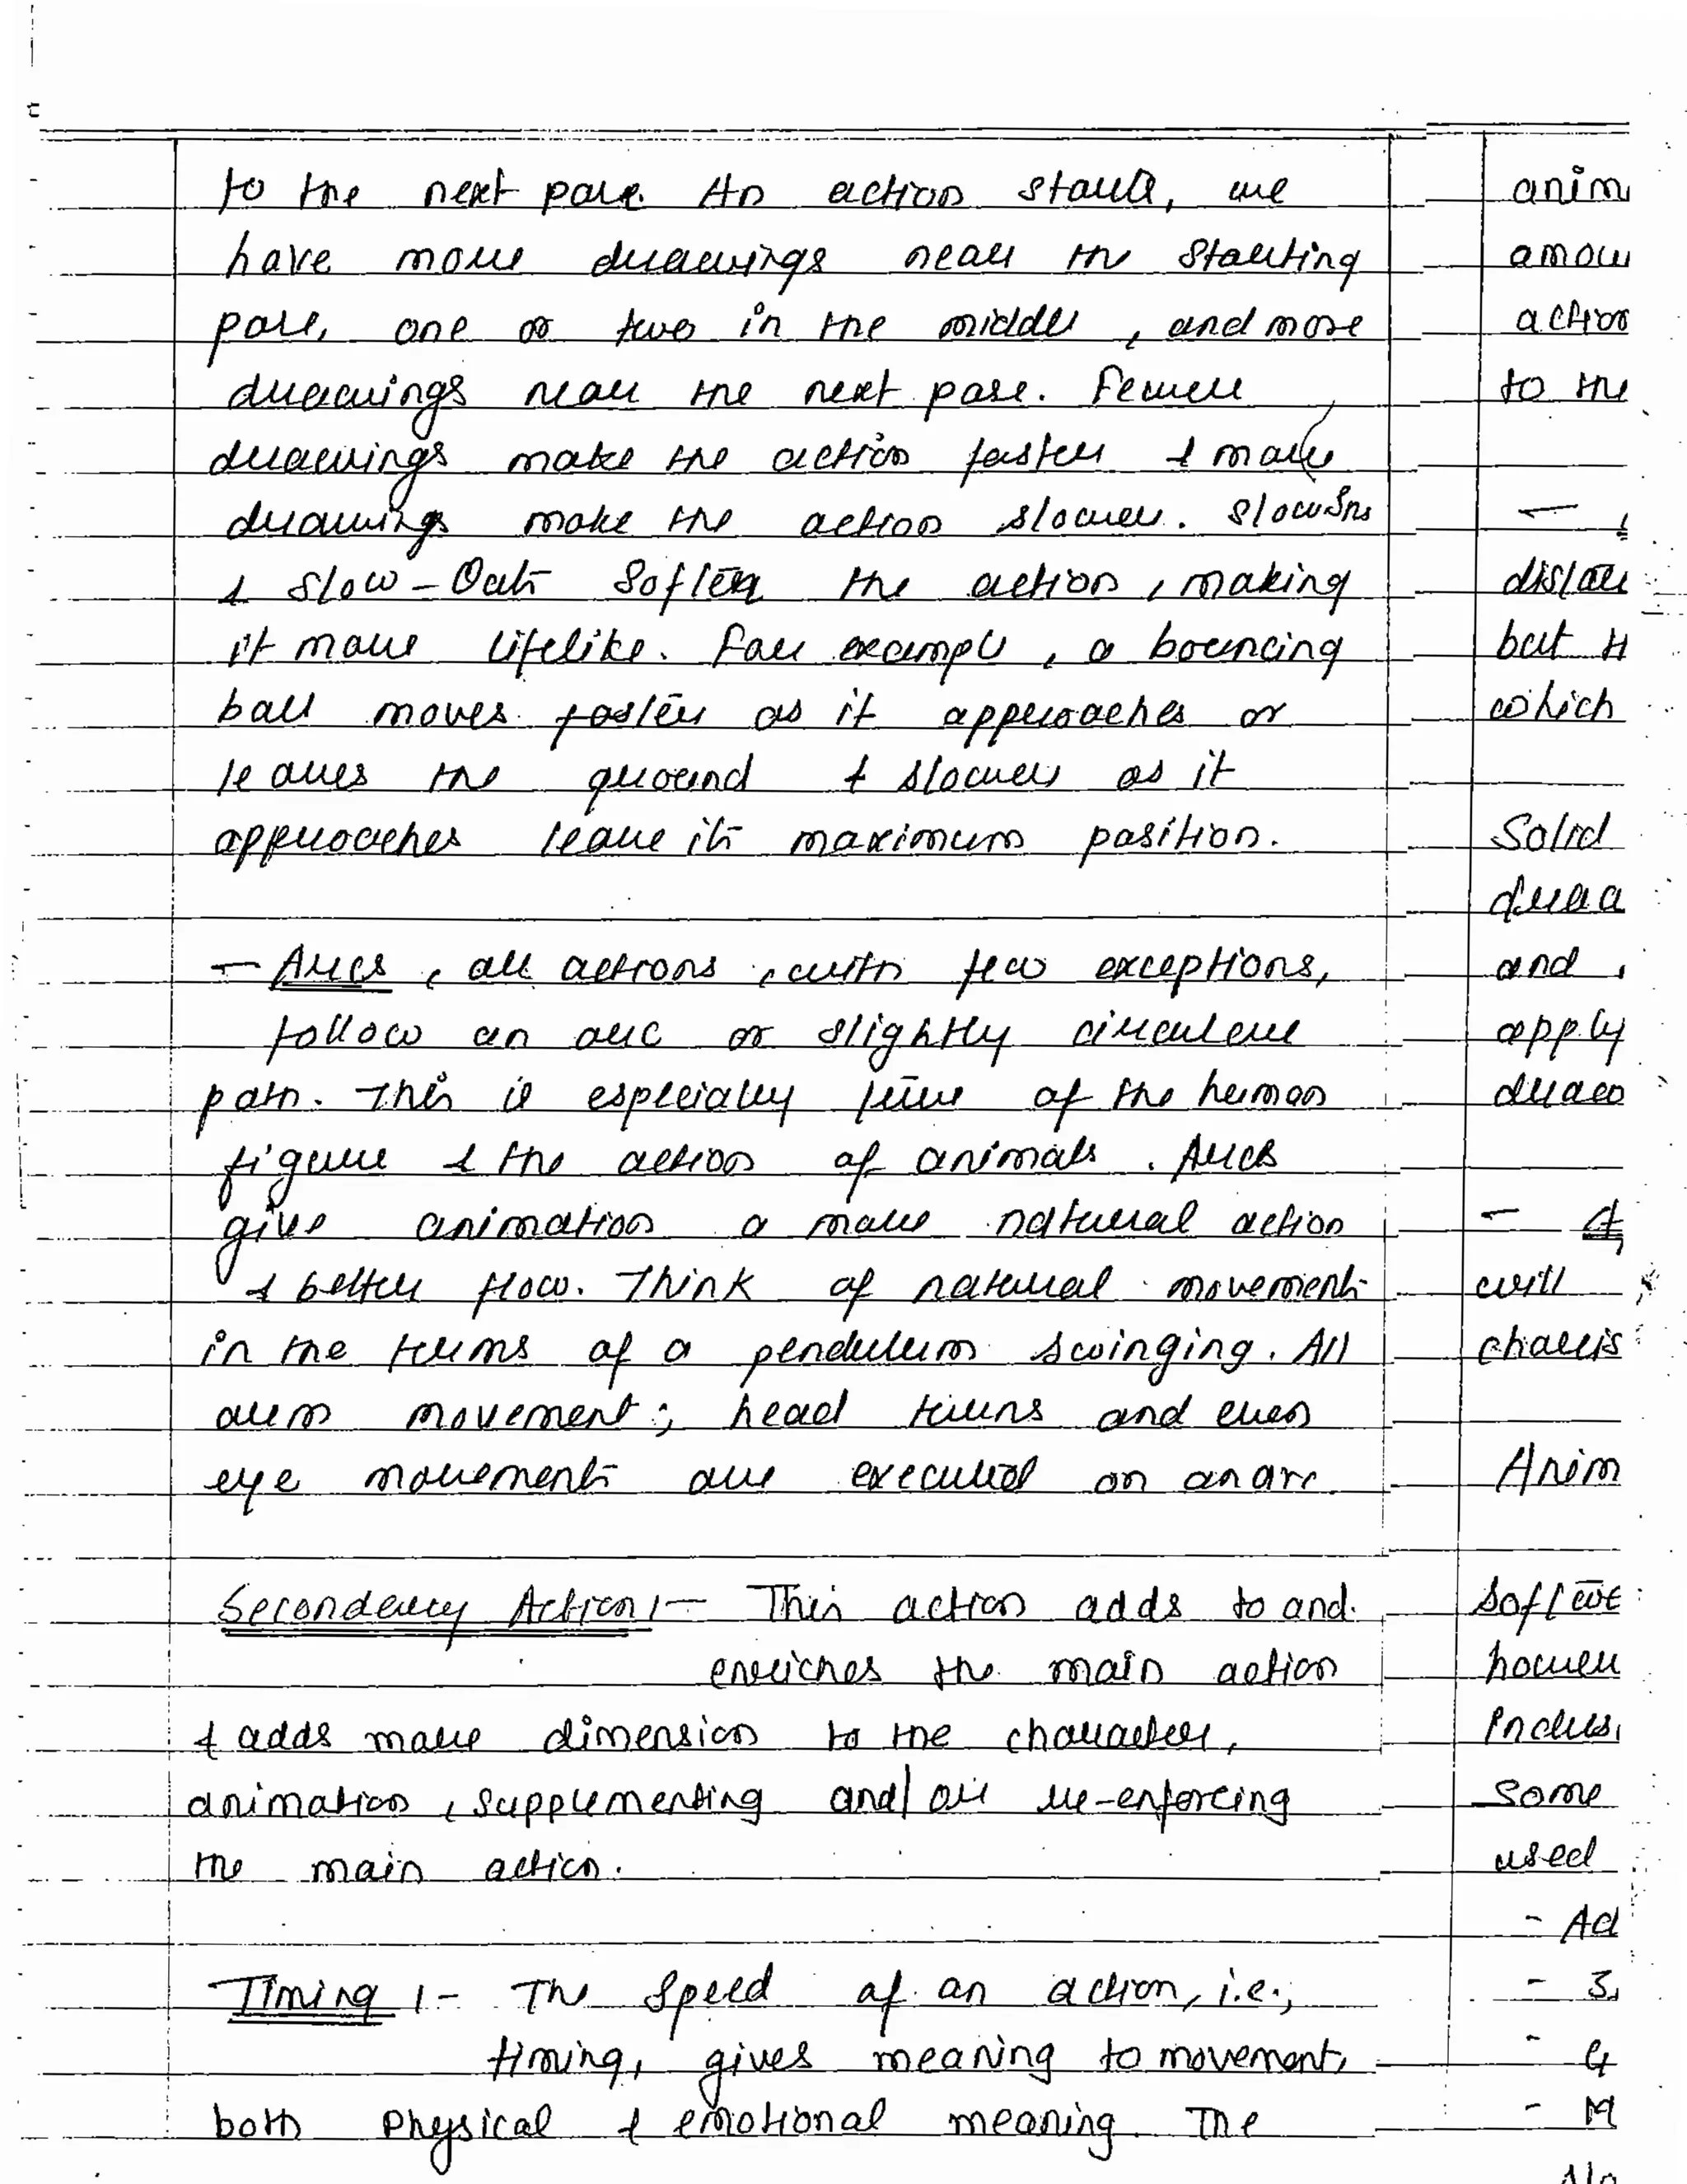 to the next pose. An action starts, we
have more drawings near the starting
pose, one or two in the middle, and more
drawings near the next pose. Fewer
drawings make the action faster & more
drawings make the action slower. Slow Ins
& Slow-Outs Soften the action, making
it more lifelike. For example, a bouncing
ball moves faster as it approaches or
leaves the ground & slower as it
approaches leave its maximum position.
- Arcs, all actions, with few exceptions,
follow an arc or slightly circular
path. This is especially true of the human
figure & the action of animals. Arcs
give animation a more natural action
& better flow. Think of natural movements
in the terms of a pendulum swinging. All
arm movement; head turns and even
eye movements are executed on an arc.
Secondary Action :- This action adds to and
enriches the main action
& adds more dimension to the character,
animation, supplementing and/or re-enforcing
the main action.
Timing :- The Speed of an action, i.e.,
timing, gives meaning to movement,
both Physical & emotional meaning. The
anim
amou
action
to the
-
but
which
Solid
draa
and
apply
draw
-
will
charis
Anim
Softw
hower
Indus
some
used
- Ad
- 3
- G
- M